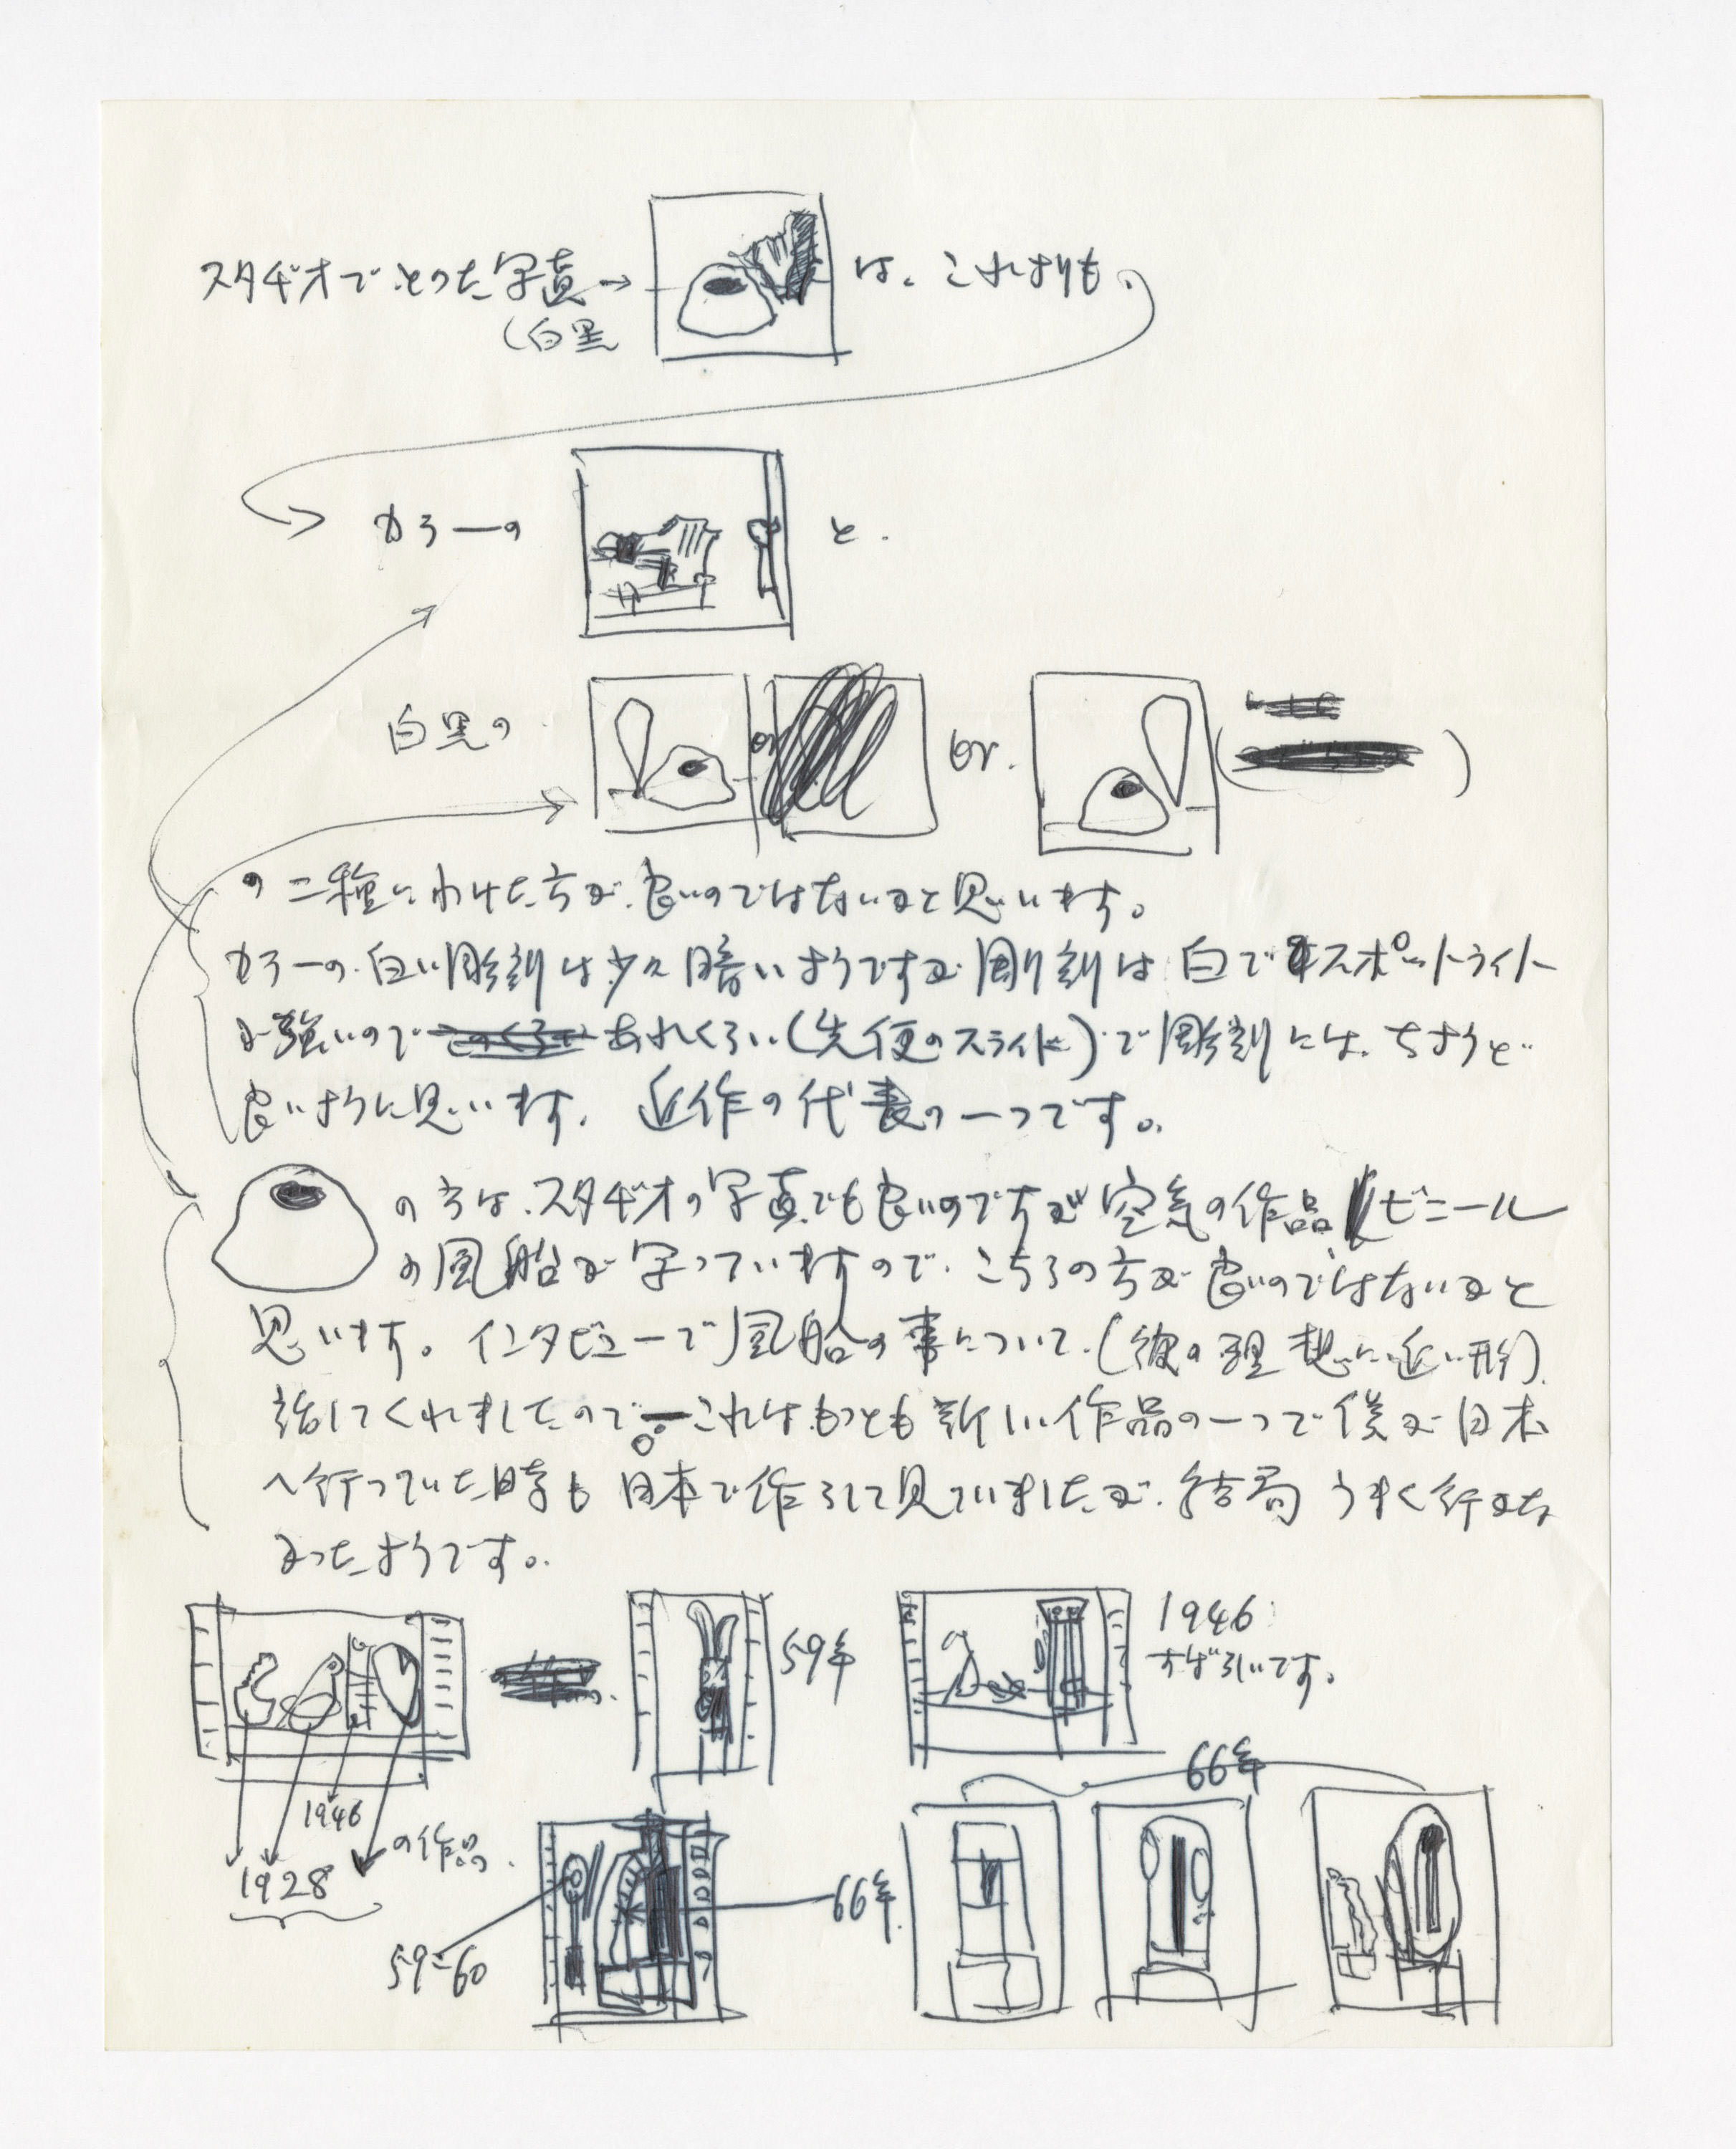 スタヂオでとった写真→ は、これよりも、
(白黒
カラーの と.
白黒の or or.
の二種にわけた方が、良いのではないかと思います。
カラーの白い彫刻は少々暗いようですが彫刻は白でスポットライト
が強いので あれくらい(先便のスライド)で彫刻には、ちょうど
良いように思います. 近作の代表の一つです。
の方は、スタヂオの写真でも良いのですが空気の作品 ビニール
の風船が写っていますので、こちらの方が良いのではないかと
思います。インタビューで風船の事について、(彼の理想に近い形)
話してくれましたので。これはもっとも新しい作品の一つで僕が日本
へ行っていた時も日本で作らして見ていましたが、結局うまく行かな
かったようです。
59年
1946
すば引いです。
66年
1946
の作品.
1928
66年.
59-60